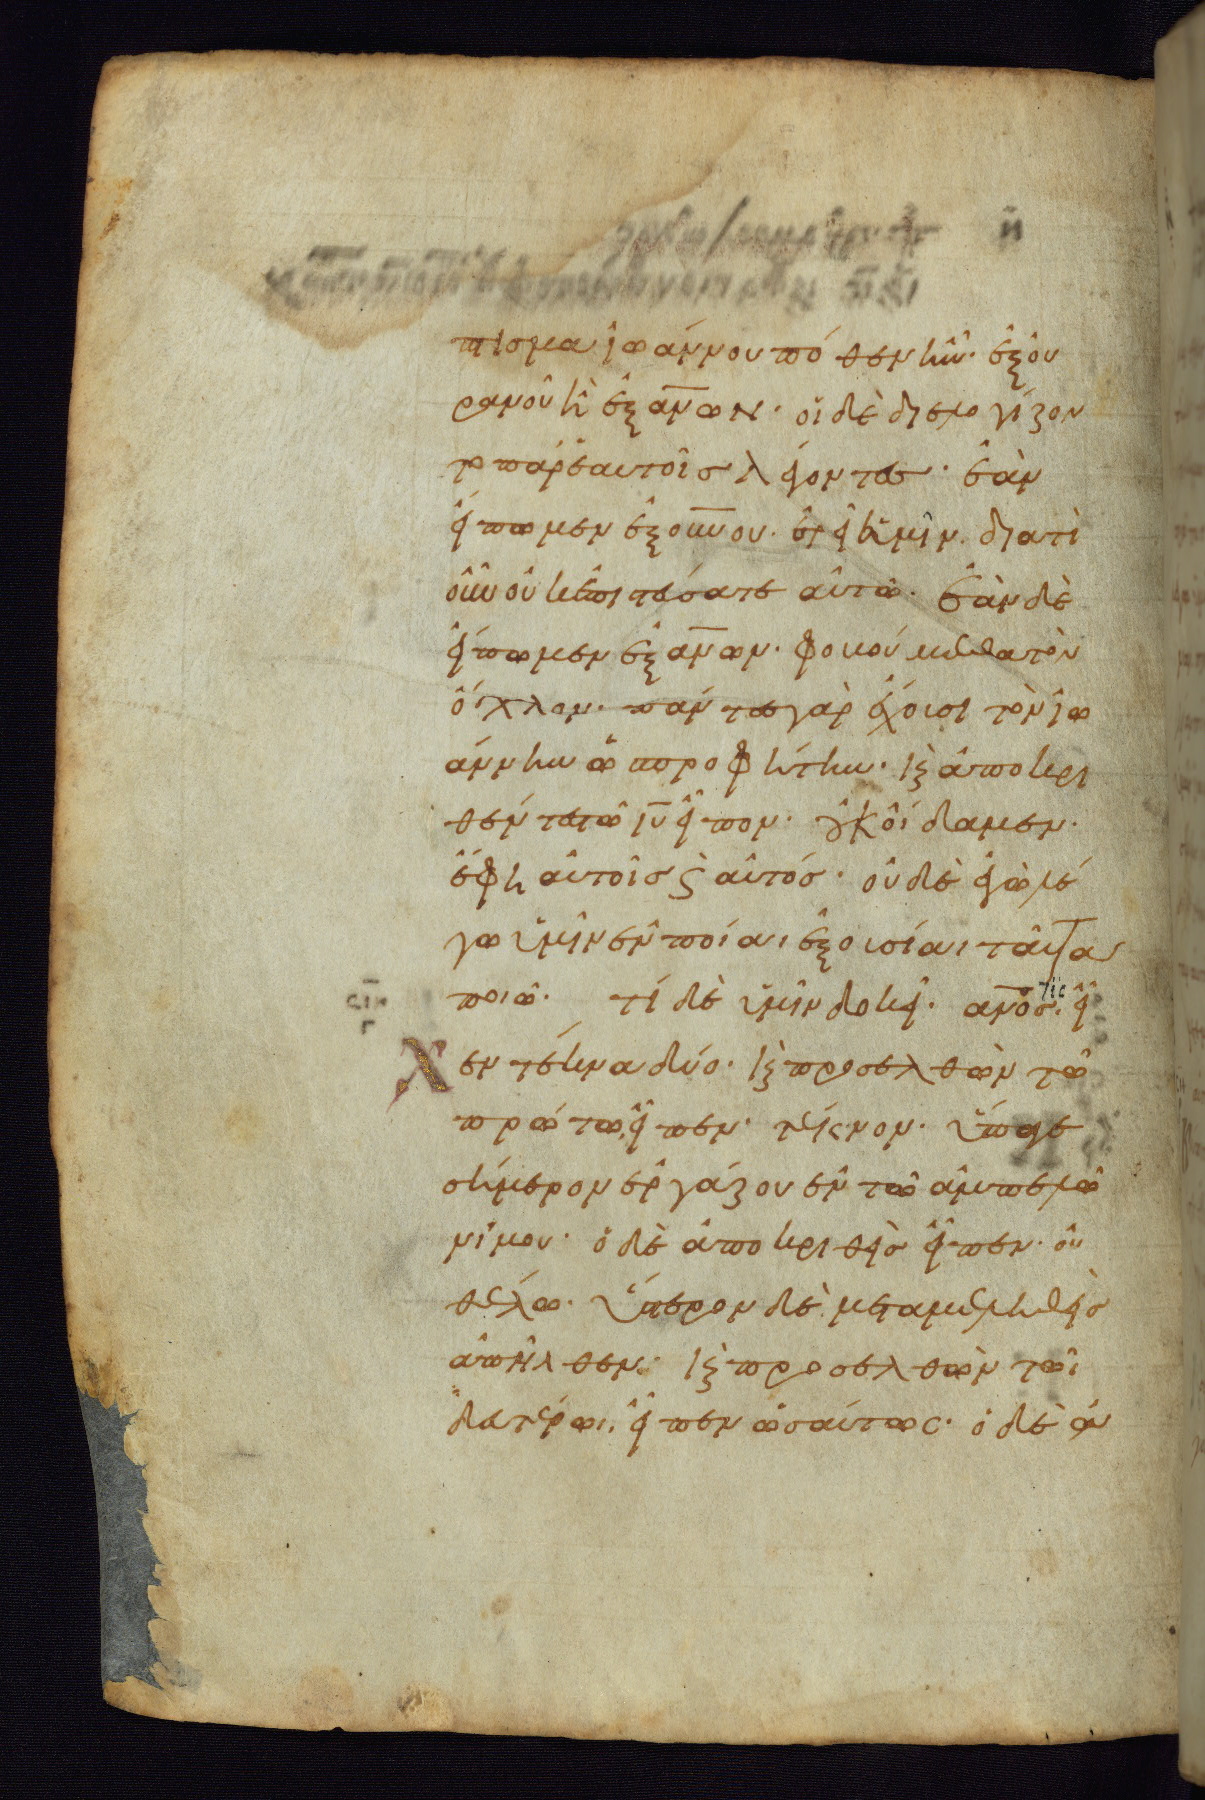 πτισμα ἰωάννου πόθεν ἦν· ἐξ οὐ
ρανοῦ ἢ ἐξ ἀν̅ων· οἱ δὲ διελογίζον
το παρ' ἑαυτοῖσ λέγοντεσ· ἐὰν
εἴπωμεν ἐξ οὐν̅ου· ἐρεῖ ἡμῖν. διατί
οὖν οὐκ ἐπιστεύσατε αὐτῶ· ἐὰν δὲ
εἴπωμεν ἐξ ἀν̅ων· φοβούμεθα τὸν
ὄχλον· πάντεσ γὰρ ἔχουσι τὸν ἰω
άννην ὡσ προφήτην· καὶ ἀποκρι
θέντεσ τῶ ιυ̅ εἶπον· οὐκ οἴδαμεν·
ἔφη αὐτοῖσ καὶ αὐτόσ· οὐδὲ ἐγὼ λέ
γω ὑμῖν ἐν ποίαι ἐξουσίαι ταῦτα
ποιῶ· τί δὲ ὑμῖν δοκεῖ· ἀν̅οσ τίς εἶ
χεν τέκνα δύο· καὶ προσελθὼν τῶ
πρώτω, εἶπεν· τέκνον· ὕπαγε
σήμερον ἐργάζου ἐν τῶ ἀμπελῶ
νί μου· ὁ δὲ ἀποκριθεὶσ εἶπεν· οὐ
θέλω· ὕστερον δὲ μεταμεληθεὶσ
ἀπῆλθεν· καὶ προσελθὼν τῶι
δευτέρωι, εἶπεν ὡσαύτως· ὁ δὲ ἀ